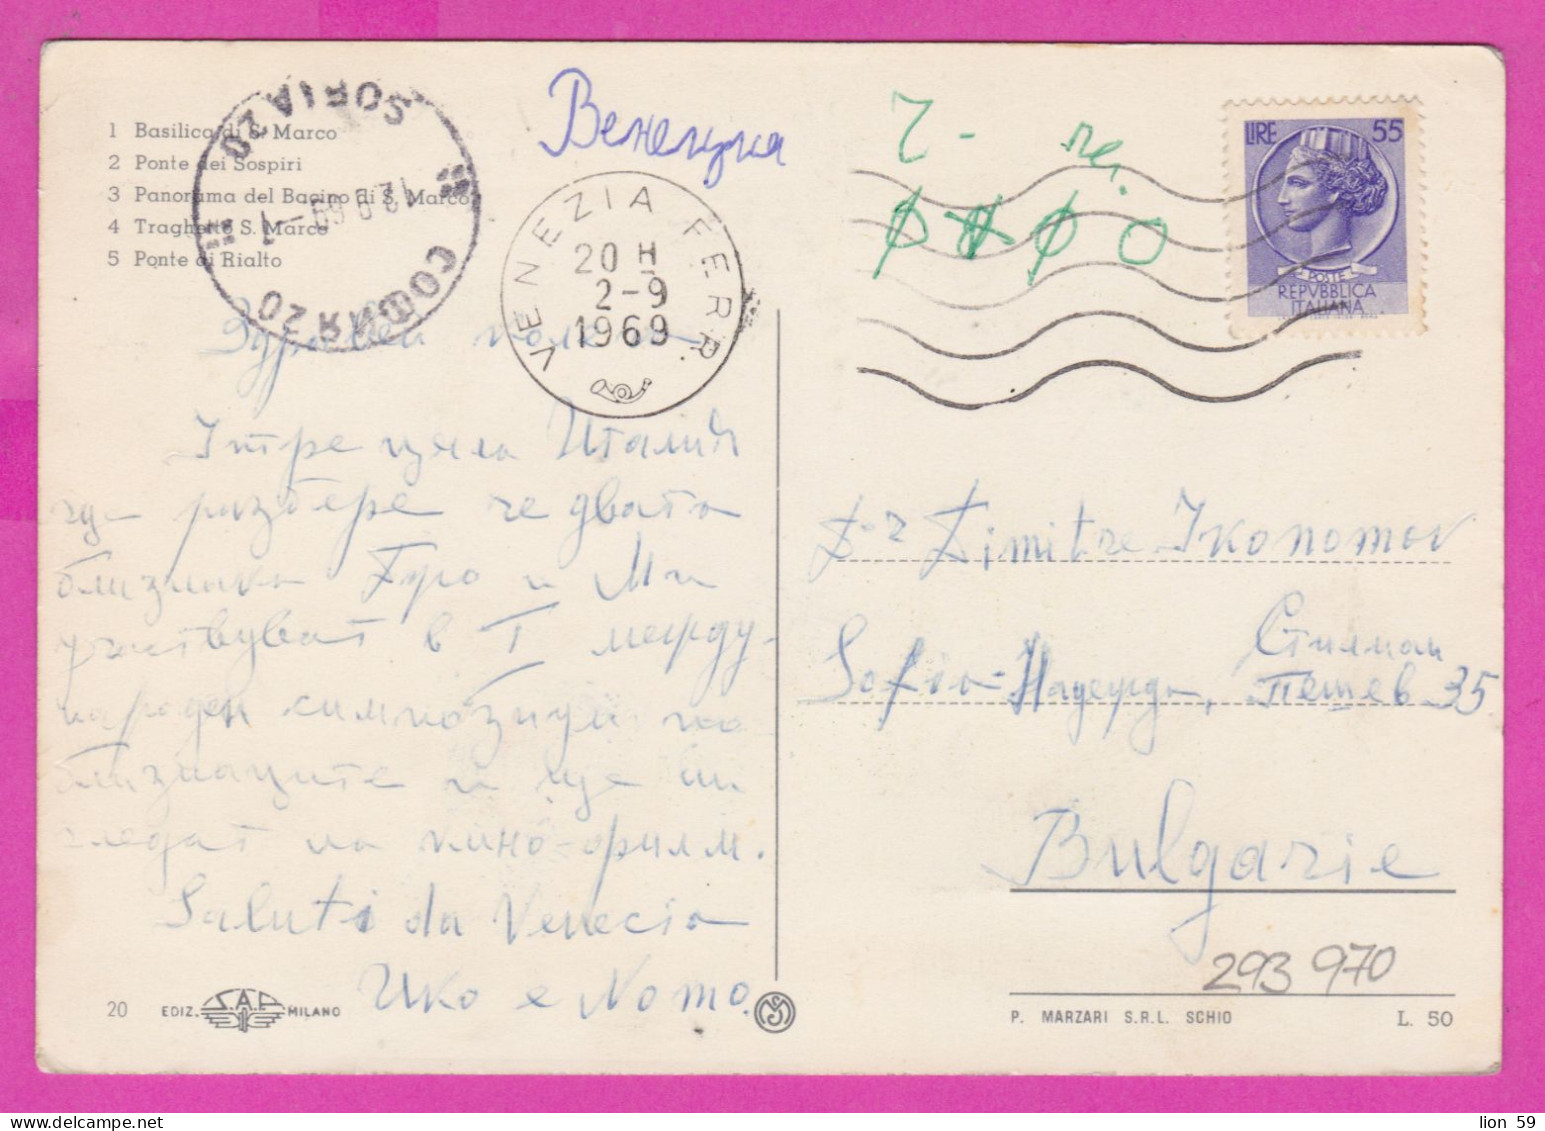 1 Basilica di S. Marco
2 Ponte dei Sospiri
3 Panorama del Bacino di S. Marco
4 Traghetto S. Marco
5 Ponte di Rialto
SOFIA 20
СОФИЯ 20
Венеция
VENEZIA FERR.
20 H
2-9
1969
LIRE 55
POSTE
REPVBBLICA
ITALIANA
Здравей колега
Утре цяла Италия
ще разбере че двата
близнака и Ми
участвуват в I между-
народен симпозиум на
близнаците и ще ги
гледат на кино-филм.
Saluti da Venecia
Ико е Nomo.
D-r Dimitre Ikonomov
Sofia-Надежда, Стилиан
Пешев 35
Bulgarie
293 970
20 EDIZ. S.A.F. MILANO
P. MARZARI S.R.L. SCHIO L. 50
lion 59